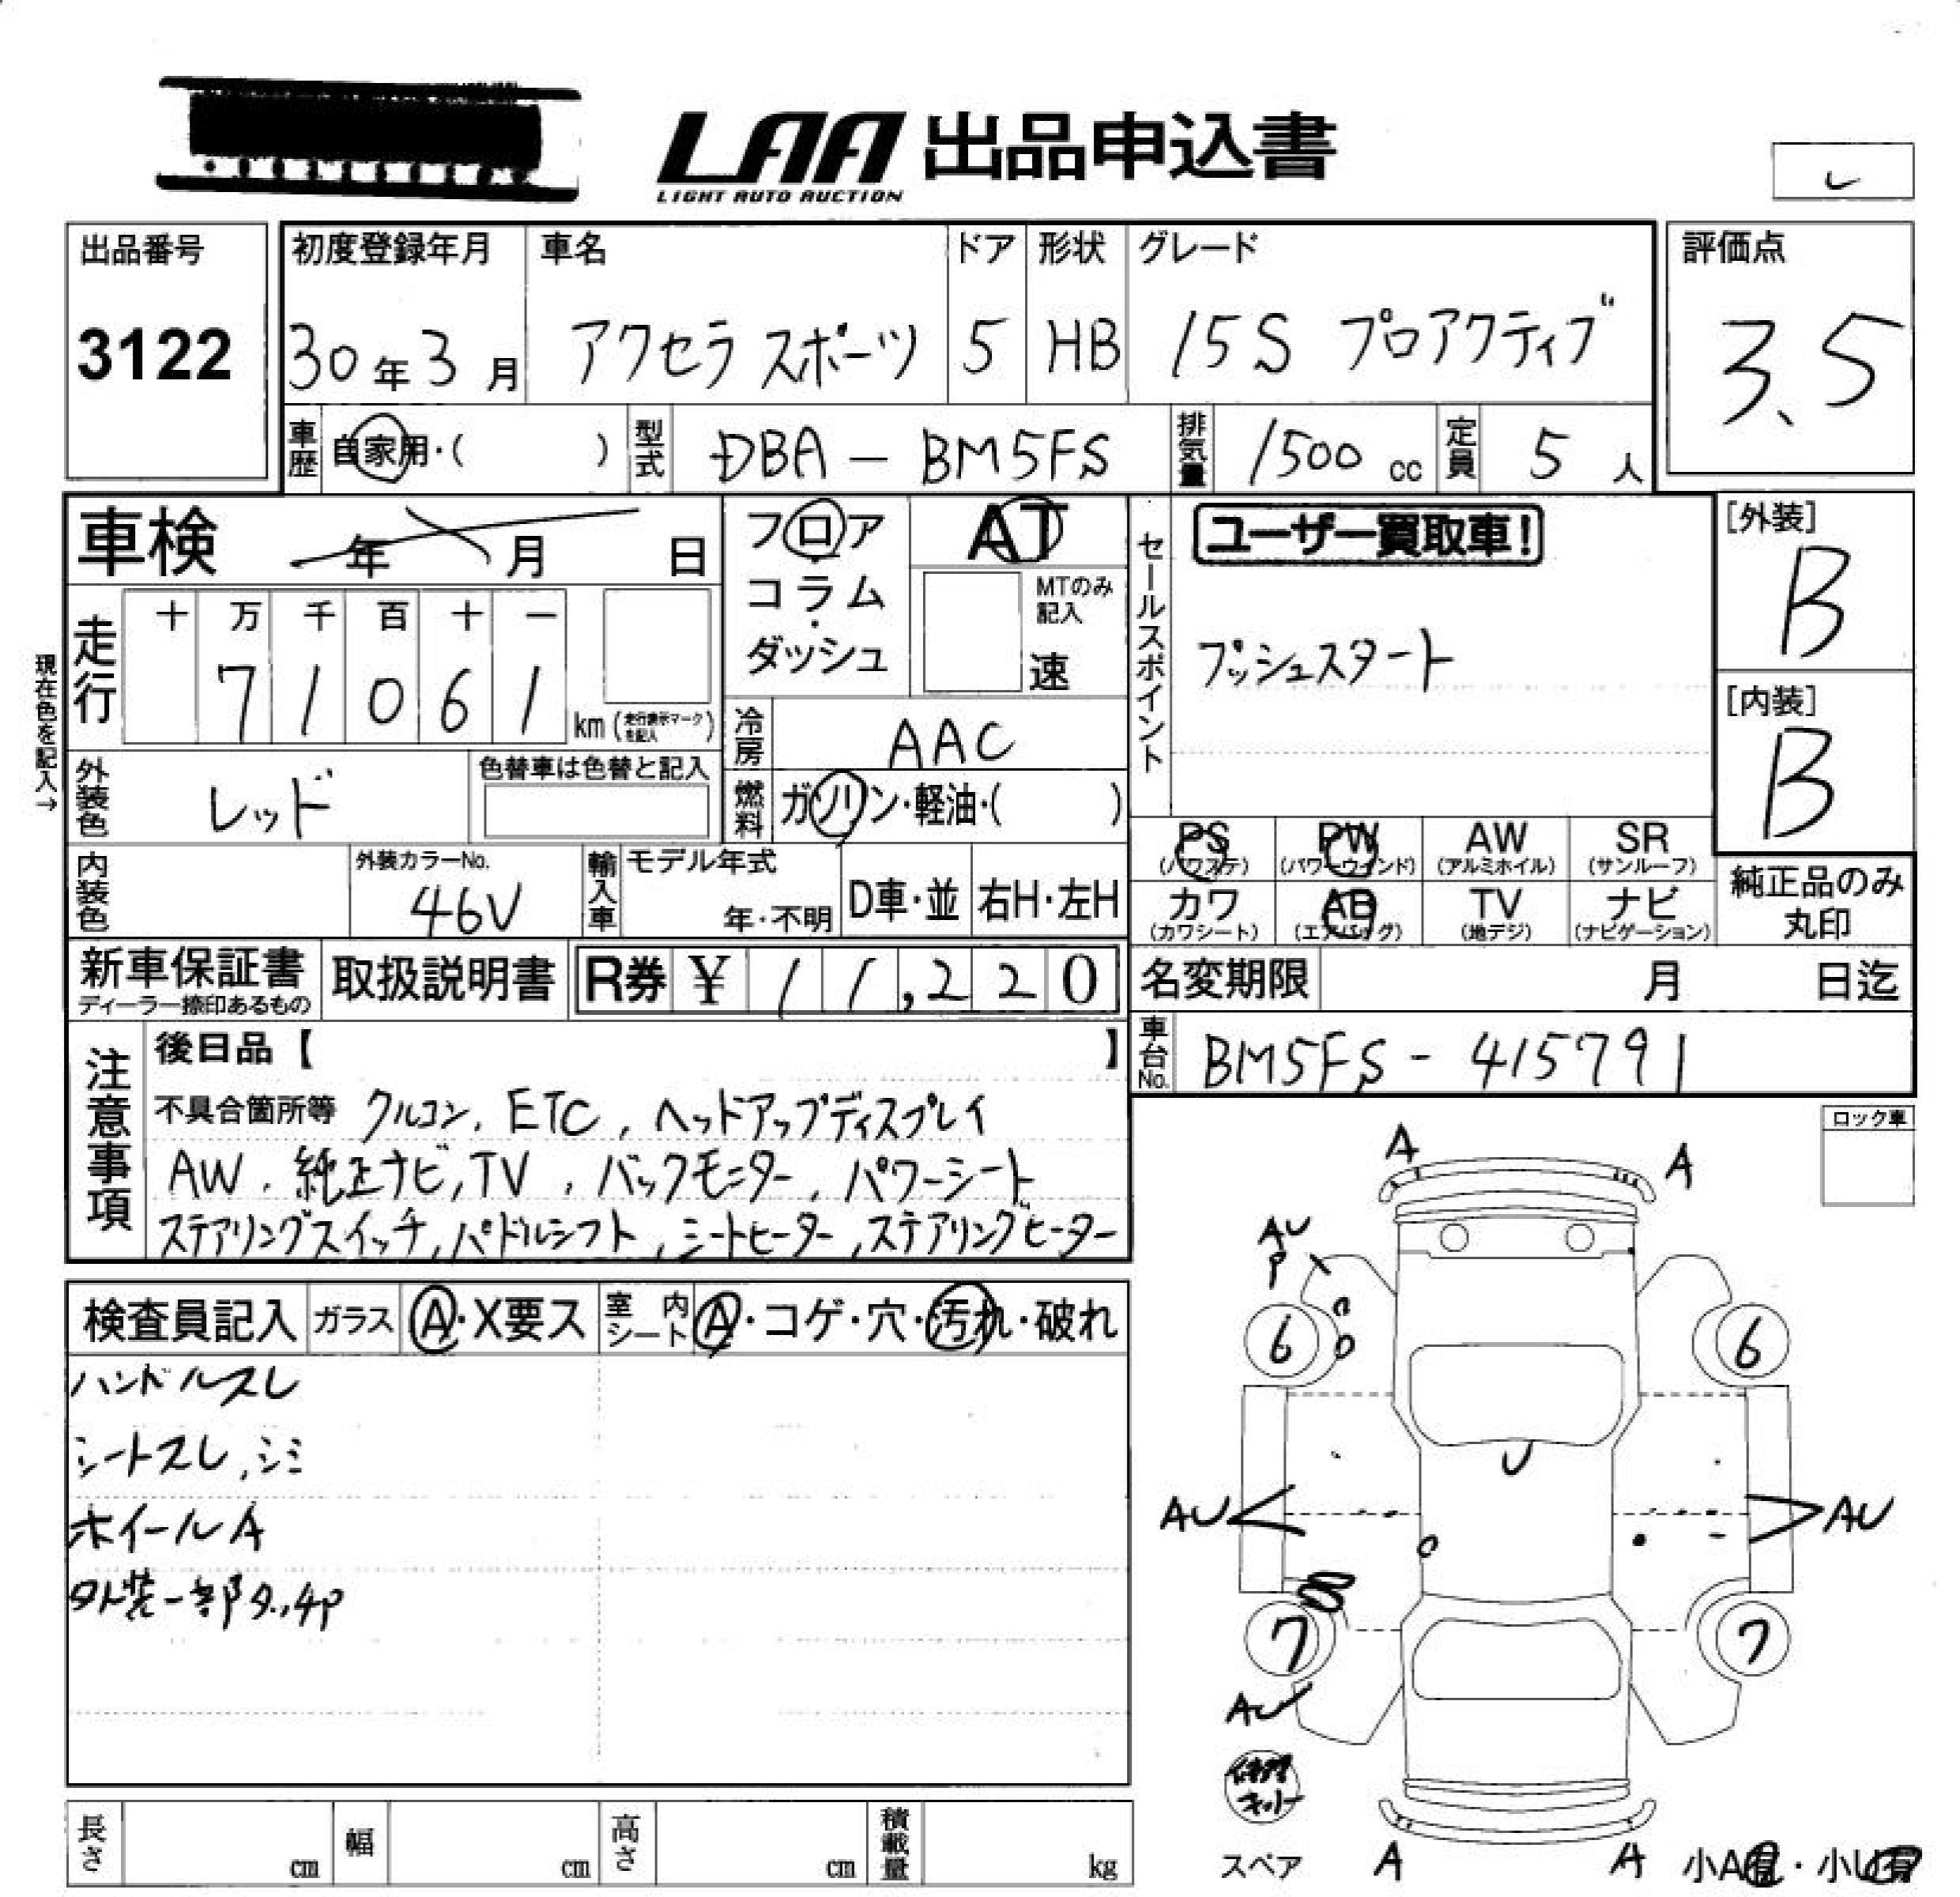 LAA 出品申込書
LIGHT AUTO AUCTION
レ
出品番号
3122
初度登録年月
30年3月
車名
アクセラ スポーツ
ドア
5
形状
HB
グレード
15S プロアクティブ
評価点
3.5
車歴 自家用・( )
型式 DBA - BM5FS
排気量 1500 cc
定員 5 人
車検 年 月 日
走行 十 万 千 百 十 一
7 1 0 6 1
km(走行表示マークを記入)
現在色を記入→
外装色 レッド
色替車は色替と記入
内装色
外装カラーNo.
46V
輸入車 モデル年式
年・不明
D車・並
右H・左H
フロア
コラム
・
ダッシュ
AT
MTのみ
記入
速
冷房 AAC
燃料 ガソリン・軽油・( )
セールスポイント
ユーザー買取車!
プッシュスタート
[外装]
B
[内装]
B
PS
(パワステ)
PW
(パワーウィンド)
AW
(アルミホイル)
SR
(サンルーフ)
カワ
(カワシート)
AB
(エアバッグ)
TV
(地デジ)
ナビ
(ナビゲーション)
純正品のみ
丸印
新車保証書
ディーラー捺印あるもの
取扱説明書
R券 ¥ 11,220
名変期限 月 日迄
車台No. BM5FS - 415791
注意事項
後日品【 】
不具合箇所等 クルコン, ETC, ヘッドアップディスプレイ
AW, 純正ナビ, TV, バックモニター, パワーシート
ステアリングスイッチ, パドルシフト, シートヒーター, ステアリングヒーター
ロック車
検査員記入 ガラス A・X要ス 室内シート A・コゲ・穴・汚れ・破れ
ハンドルスレ
シートスレ, シミ
ホイールA
外装一部タッチP
A A
AU
P
6 6
U
AU AU
7 7
AU
修理
キット
スペア
A A
小A有・小U有
長さ cm
幅 cm
高さ cm
積載量 kg